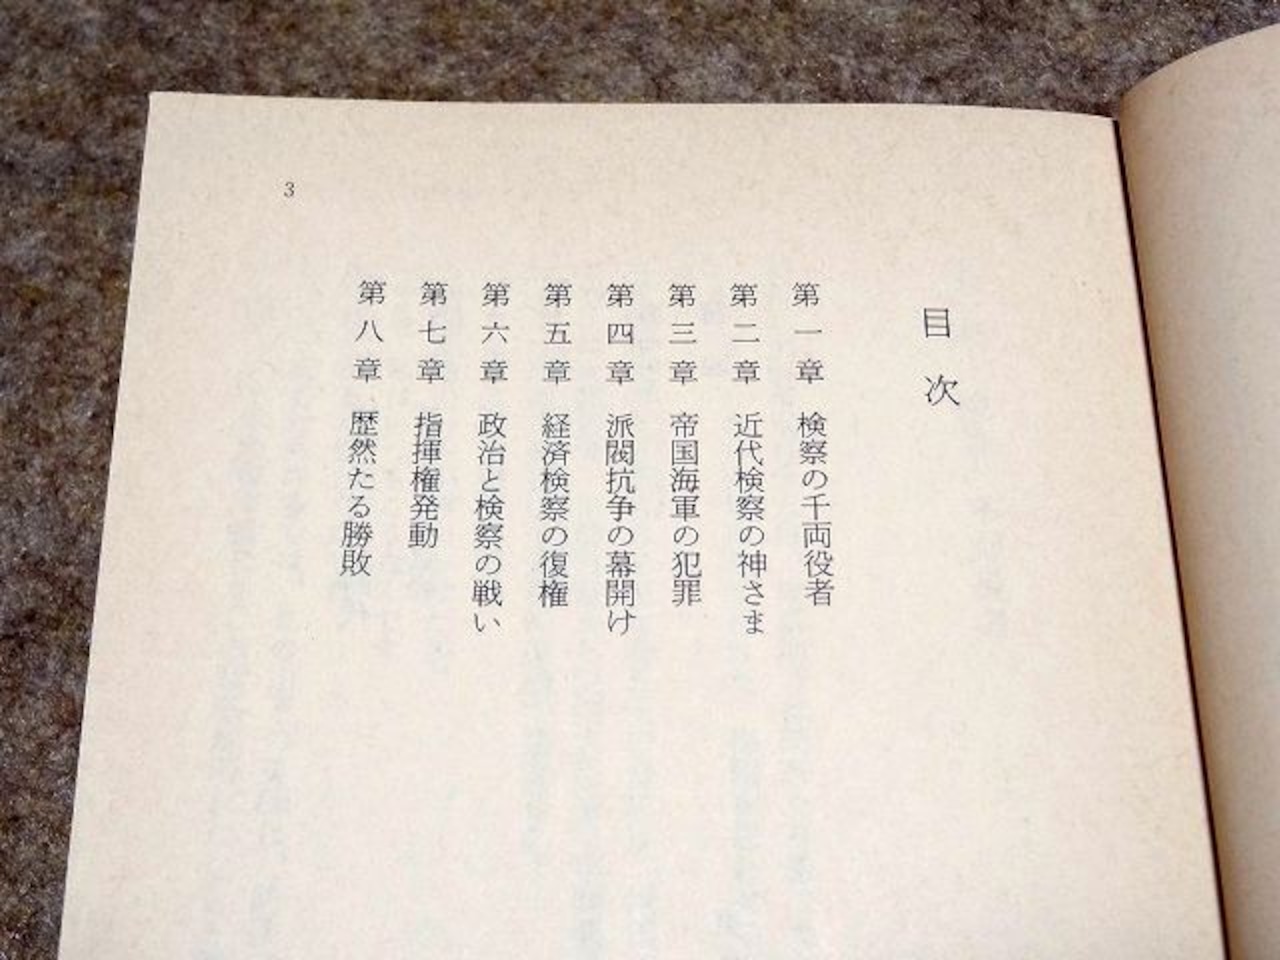 目次
第一章 検察の千両役者
第二章 近代検察の神さま
第三章 帝国海軍の犯罪
第四章 派閥抗争の幕開け
第五章 経済検察の復権
第六章 政治と検察の戦い
第七章 指揮権発動
第八章 歴然たる勝敗
3